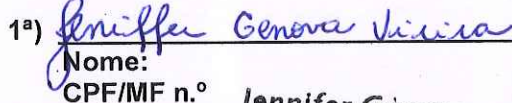 1ª) Jeniffer Genova Vieira
Nome:
CPF/MF n.º Jennifer G